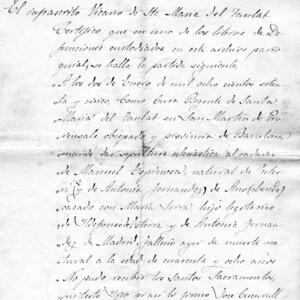 El infrascrito Vicario de Sta Maria del Taulat
Certifico que en uno de los libros de De
funciones custodiados en este archivo parro
quial, se halla la partida siguiente
A los dos de Enero de mil ocho cientos seten
ta y cinco, como Cura Regente de Santa
Maria del Taulat en San Martin de Pro
vensals obispado y provincia de Barcelona
mandé dar sepultura eclesiástica al cadaver
de Manuel Espinosa, natural de
de Antonia Fernandez, de
casado con Maria Serra hijo legitimo
de Ildefonso y de Antonia Fernan
dez de Madrid, falleció ayer de muerte na
tural a la edad de cuarenta y ocho años
No pudo recibir los Santos Sacramentos,
primo José